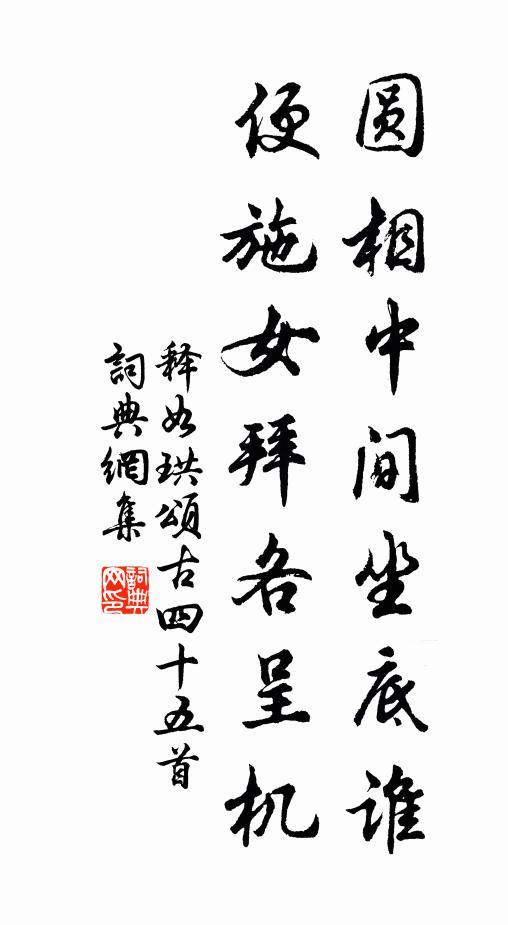 圆相中间坐底谁
便施女拜各呈机
释如珙颂古四十五首
詞典網集
詞典网印